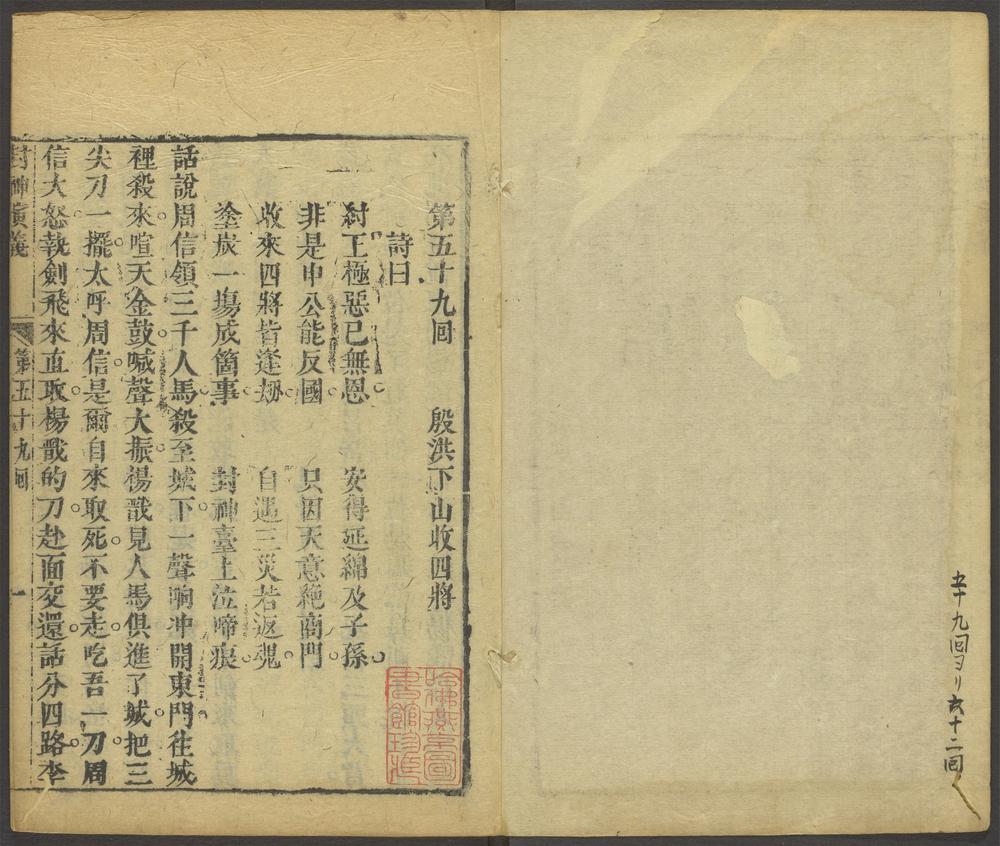 五十九回ヨリ六十二回
第五十九回　殷洪下山收四將
詩曰
紂王極惡已無恩　安得延綿及子孫
非是申公能反國　只因天意絶商門
收來四將皆逢刼　自遇三災若返魂
塗炭一塲成箇事　封神臺上泣啼痕
話說周信領三千人馬殺至城下一聲响冲開東門徃城
裡殺來喧天金鼓喊聲大振楊戩見人馬俱進了城把三
尖刀一擺大呼周信是爾自來取死不要走吃吾一刀周
信大怒執劍飛來直取楊戩的刀赴面交還話分四路李
封神演義
第五十九回
一
哈佛燕京圖
書館珍藏